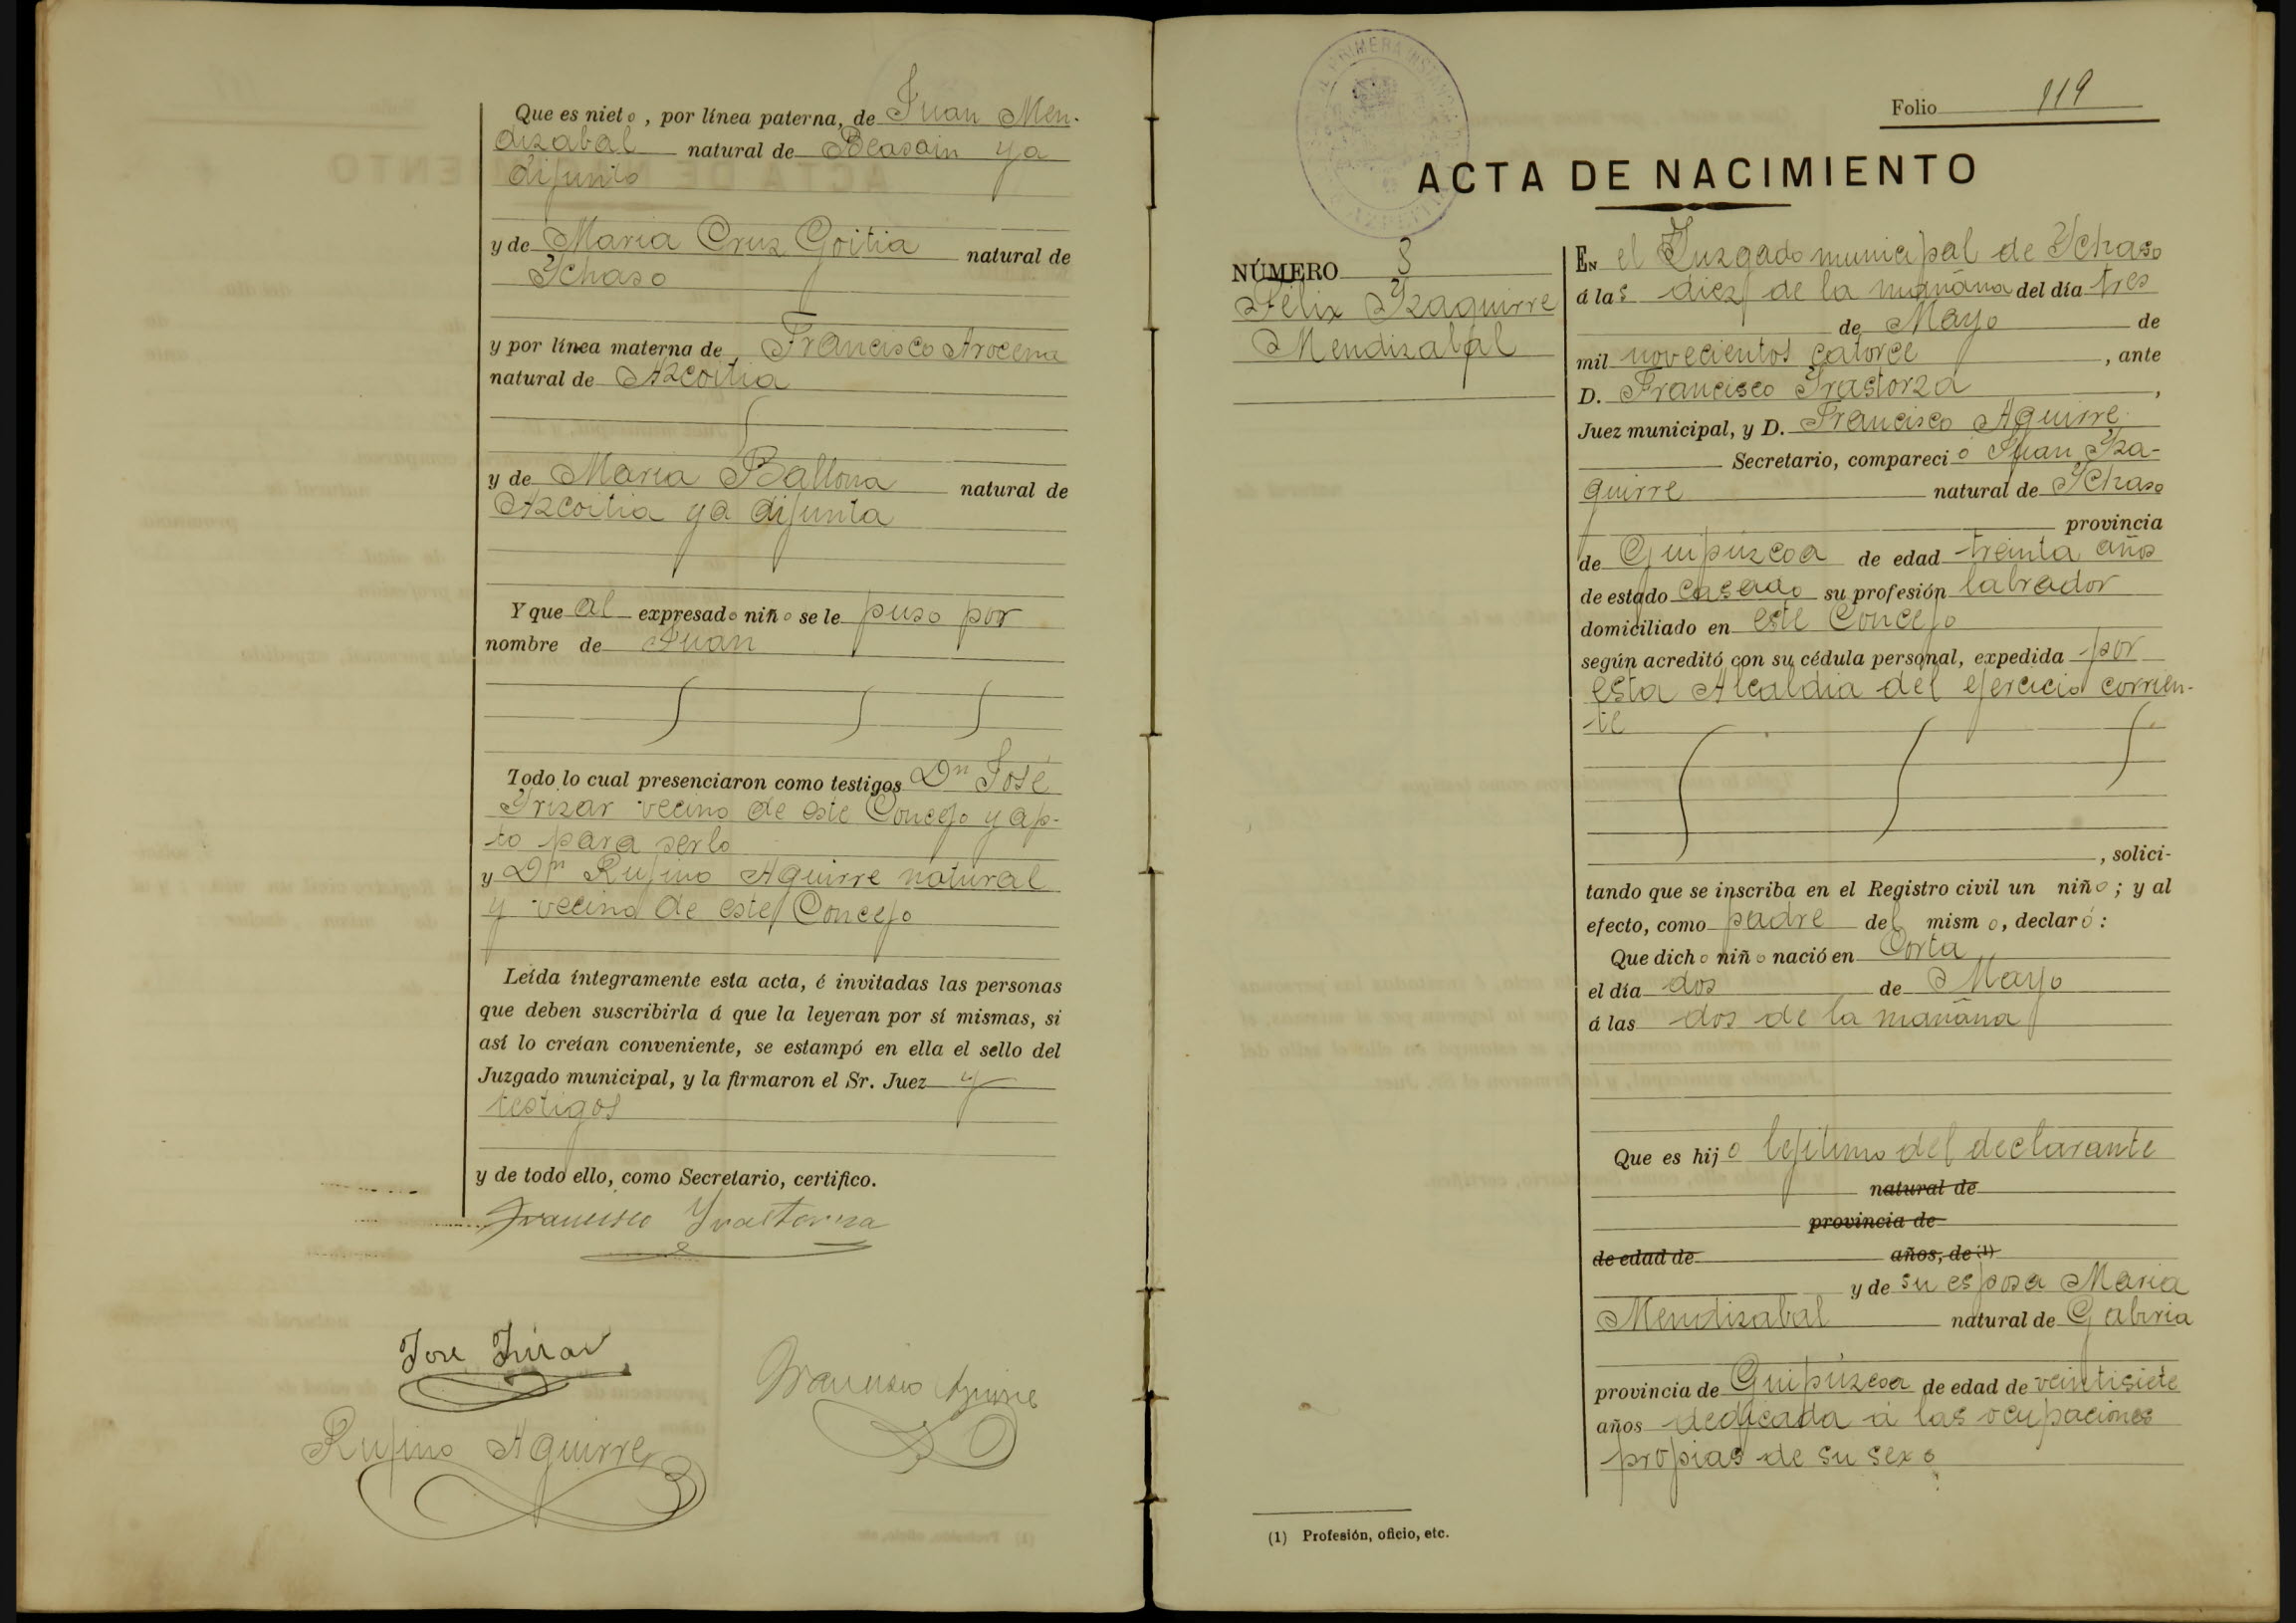 Que es nieto, por línea paterna, de Juan Men-
dizabal natural de Beasain ya
difunto
y de Maria Cruz Goitia natural de
Ychaso
y por línea materna de Francisco Arocena
natural de Azcoitia
y de Maria Ballona natural de
Azcoitia ya difunta
Y que al expresado niño se le puso por
nombre de Juan
Todo lo cual presenciaron como testigos Dn José
Yrizar vecino de este Concejo y ap-
to para serlo
y Dn Rufino Aguirre natural
y vecino de este Concejo
Leída íntegramente esta acta, é invitadas las personas
que deben suscribirla á que la leyeran por sí mismas, si
así lo creían conveniente, se estampó en ella el sello del
Juzgado municipal, y la firmaron el Sr. Juez y
testigos
y de todo ello, como Secretario, certifico.
Francisco Yrastorza
José Yrizar
Francisco Aguirre
Rufino Aguirre
Folio 119
ACTA DE NACIMIENTO
NÚMERO 8
Félix Yzaguirre
Mendizabal
EN el Juzgado municipal de Ychaso
á las diez de la mañana del día tres
de Mayo de
mil novecientos catorce, ante
D. Francisco Yrastorza,
Juez municipal, y D. Francisco Aguirre
Secretario, compareció Juan Yza-
guirre natural de Ychaso
provincia
de Guipúzcoa de edad treinta años
de estado casado su profesión labrador
domiciliado en este Concejo
según acreditó con su cédula personal, expedida por
esta Alcaldia del ejercicio corrien-
te
, solici-
tando que se inscriba en el Registro civil un niño; y al
efecto, como padre del mismo, declaró:
Que dicho niño nació en Corta
el día dos de Mayo
á las dos de la mañana
Que es hijo lejitimo del declarante
natural de
provincia de
de edad de años, de (1)
y de su esposa Maria
Mendizabal natural de Gabiria
provincia de Guipúzcoa de edad de veintisiete
años dedicada á las ocupaciones
propias de su sexo
(1) Profesión, oficio, etc.